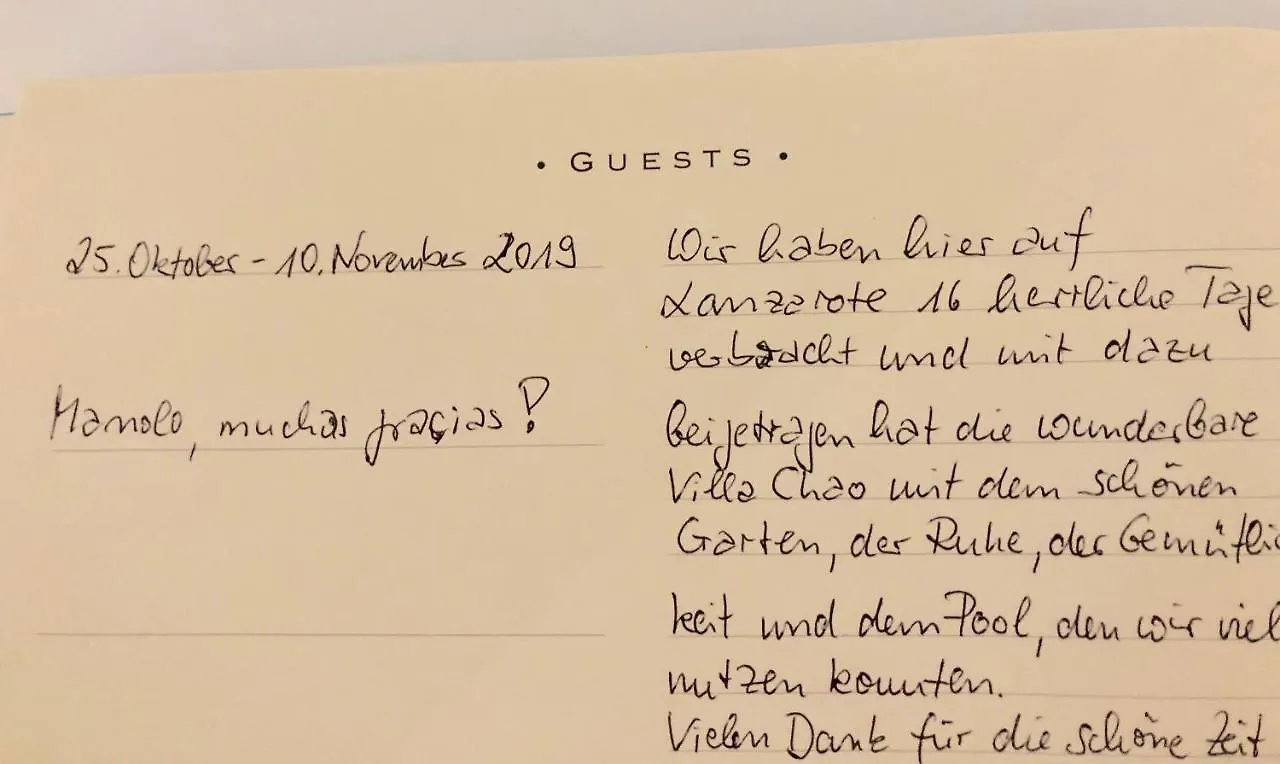 • GUESTS •
25. Oktober - 10. November 2019
Manolo, muchas graçias!
Wir haben hier auf
Lanzarote 16 herrliche Tage
verbracht und mit dazu
beigetragen hat die wunderbare
Villa Chao mit dem schönen
Garten, der Ruhe, der Gemütlic
keit und dem Pool, den wir viel
nutzen konnten.
Vielen Dank für die schöne Zeit